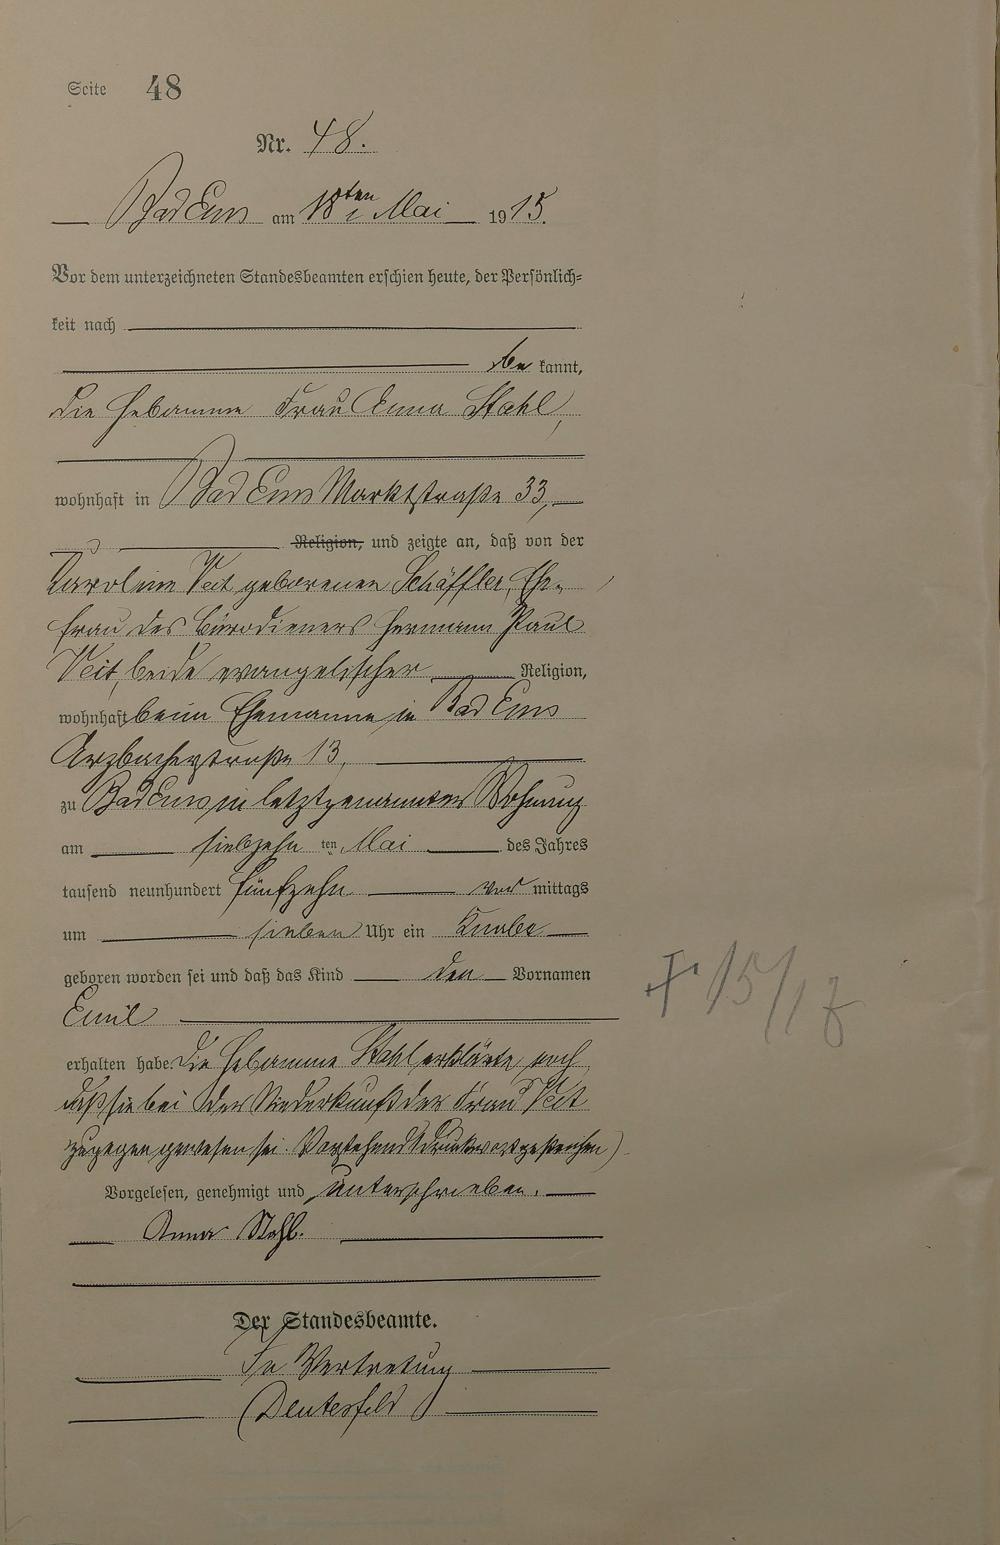 Seite 48
Nr. 48.
Bad Ems am 18ten Mai 1915.
Vor dem unterzeichneten Standesbeamten erschien heute, der Persönlich-
keit nach
be kannt,
die Hebamme Frau Anna Stahl,
wohnhaft in Bad Ems Marktstraße 33,
Religion, und zeigte an, daß von der
Karoline Veit geborenen Schäffler, Ehe-
frau des Bürodieners Hermann Paul
Veit, beide evangelischer Religion,
wohnhaft beim Ehemanne in Bad Ems
Arzbacherstraße 13,
zu Bad Ems in letztgenannter Wohnung
am siebzehn ten Mai des Jahres
tausend neunhundert fünfzehn vor mittags
um sieben Uhr ein Knabe
geboren worden sei und daß das Kind den Vornamen
Emil
erhalten habe. Die Hebamme Stahl erklärte noch
daß sie bei der Niederkunft der Frau Veit
zugegen gewesen sei. Vorstehend Druckwort gestrichen)
Vorgelesen, genehmigt und unterschrieben.
Anna Stahl.
Der Standesbeamte.
In Vertretung